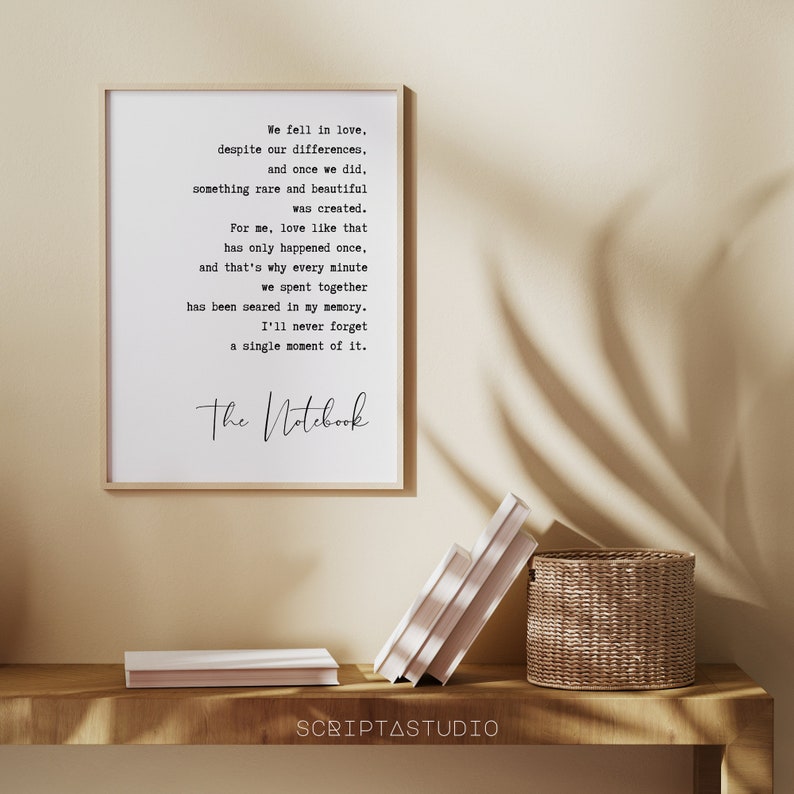 We fell in love,
despite our differences,
and once we did,
something rare and beautiful
was created.
For me, love like that
has only happened once,
and that's why every minute
we spent together
has been seared in my memory.
I'll never forget
a single moment of it.
The Notebook
SCRIPTASTUDIO